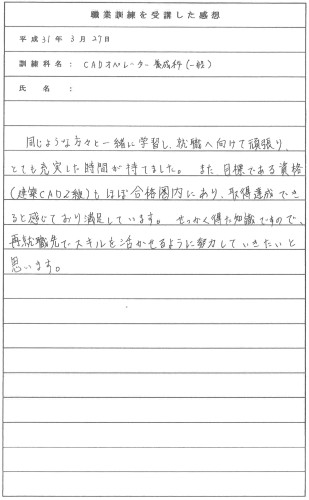 職業訓練を受講した感想
平成 31年 3月 27日
訓練科名： CADオペレーター養成科(一般)
氏名：
同じような方々と一緒に学習し、就職へ向けて頑張り、
とても充実した時間が持てました。また目標である資格
(建築CAD2級)もほぼ合格圏内にあり、取得達成でき
ると感じており満足しています。せっかく得た知識ですので、
再就職先でスキルを活かせるように努力していきたいと
思います。